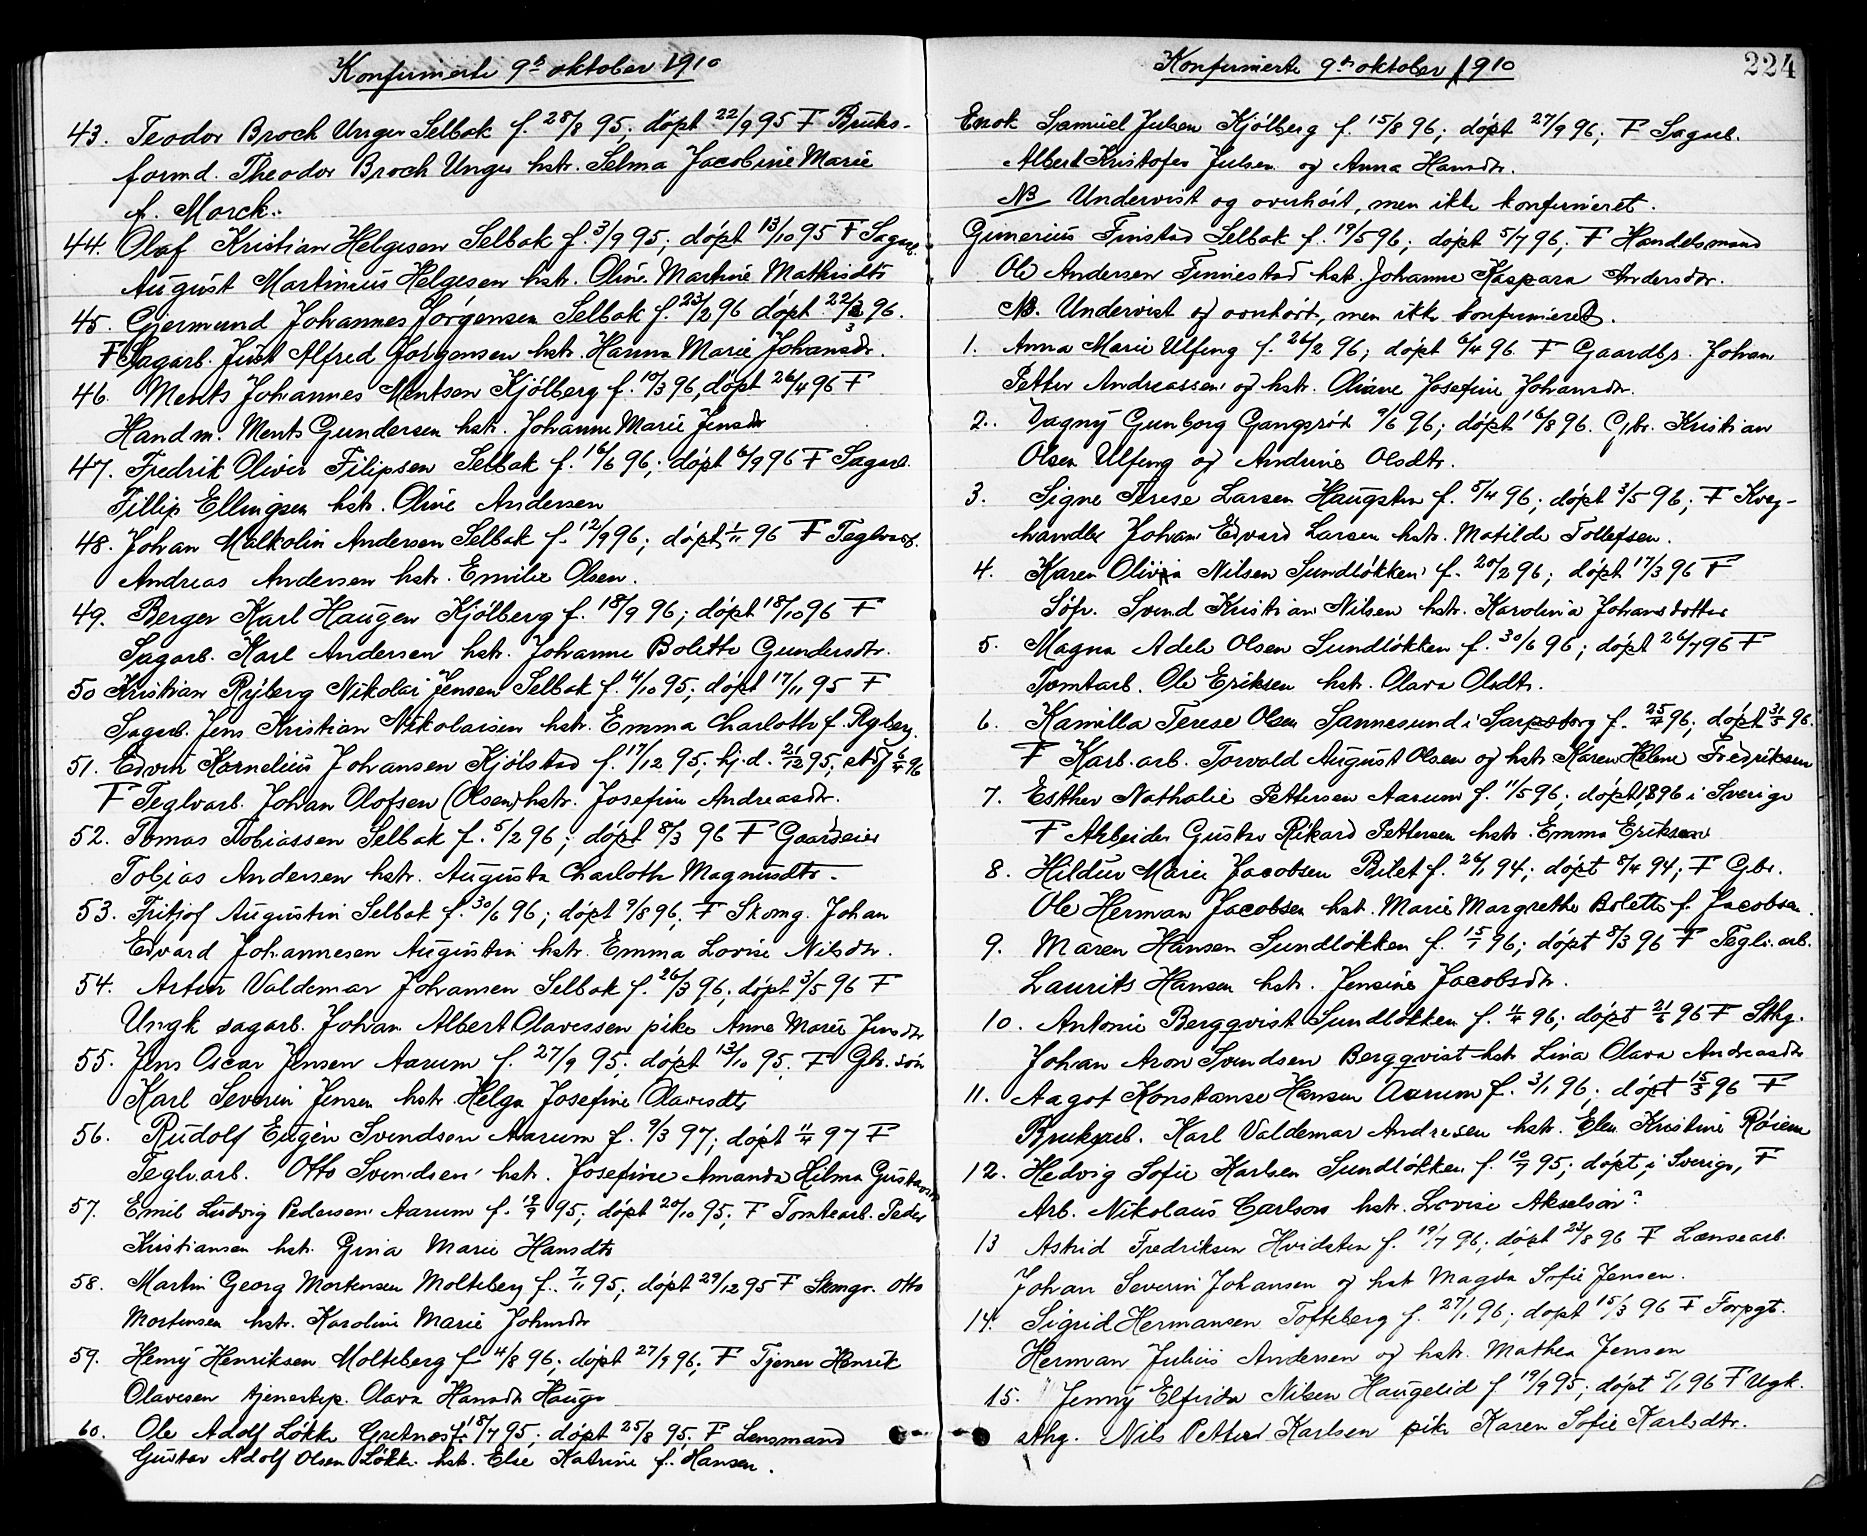 Konfirmerte 9de oktober 1910
43. Teodor Broch Unger Selbak f. 28/8 95. döpt 22/9 95 F Bruks-
formd. Theodor Broch Unger hstr. Selma Jacobine Marie
f. Morck.
44. Olaf Kristian Helgesen Selbak f. 3/9 95; döpt 13/10 95 F Sagarb.
August Martinius Helgesen hstr. Oline Martine Mathisdtr
45. Gjermund Johannes Jörgensen Selbak f. 23/2 96 döpt 22/3 96.
F Sagarb. Just Alfred Jörgensen hstr. Hanna Marie Johansdr.
46. Ments Johannes Mentsen Kjölberg f. 10/3 96, döpt 26/4 96 F
Handm. Ments Gundersen hstr. Johanne Marie Jensdr
47. Fredrik Oliver Filipsen Selbak f. 16/6 96; döpt 6/9 96 F Sagarb.
Fillip Ellingsen hstr. Oline Andersen
48. Johan Malkolin Andersen Selbak f. 12/9 96; döpt 1/11 96 F Teglvarb.
Andreas Andersen hstr. Emilie Olsen.
49. Berger Karl Haugen Kjölberg f. 18/9 96; döpt 18/10 96 F
Sagarb. Karl Andersen hstr. Johanne Bolette Gundersdtr.
50 Kristian Ryberg Nikolai Jensen Selbak f. 4/10 95; döpt 17/11 95 F
Sagarb. Jens Kristian Nikolaisen hstr. Emma Charlotte f. Ryberg.
51. Edvin Kornelius Johansen Kjölstad f. 17/12 95; hj.d. 21/12 95, 6/4 96
F Teglvarb. Johan Olofsen (Olsen) hstr. Josefine Andreasdr.
52. Tomas Tobiassen Selbak f. 5/2 96; döpt 8/3 96 F Gaardeier
Tobias Andersen hstr. Augusta Charlotte Magnusdtr.
53. Fritjof Augustin Selbak f. 30/6 96; döpt 9/8 96; F Skomg. Johan
Edvard Johannesen Augustin hstr. Emma Lovise Nilsdr.
54. Artur Valdemar Johansen Selbak f. 26/3 96; döpt 3/5 96 F
Ungk sagarb. Johan Albert Olavessen pike Anne Marie Jensdr
55. Jens Oscar Jensen Aarum f. 27/9 95; döpt 13/10 95. F Gbr. sön
Karl Severin Jensen hstr Helga Josefine Olavesdtr
56. Rudolf Eugén Svendsen Aarum f. 9/3 97; döpt 11/4 97 F
Teglv.arb. Otto Svendsen hstr. Josefine Amanda Hilma Gustavsdr
57. Emil Ludvig Pedersen Aarum f. 19/9 95; döpt 20/10 95; F Tomtearb. Peder
Kristiansen hstr. Gina Marie Hansdtr
58. Martin Georg Mortensen Molteberg f. 7/11 95; döpt 29/12 95 F Skmgr. Otto
Mortensen hstr. Karoline Marie Johnsdr
59. Henry Henriksen Molteberg f 4/8 96; döpt 27/9 96; F Tjener Henrik
Olavesen tjenestep. Olava Hansdr Hauge
60. Ole Adolf Lökke Gretnes f. 18/7 95; döpt 25/8 95. F Lensmand
Gustav Adolf Olsen Lökke hstr. Elise Katrine f. Hansen.
Konfirmerte 9de oktober 1910
224
Enok Samuel Julsen Kjölberg f. 15/8 96; döpt 27/9 96; F Sagarb.
Albert Kristofer Julsen og Anna Hansdtr.
NB Undervist og overhört, men ikke konfirmeret.
Gunerius Finstad Selbak f. 19/5 96; döpt 5/7 96; F Handelsmand
Ole Andersen Finnestad hstr. Johanne Kaspara Andersdtr.
NB. Undervist og overhört, men ikke konfirmeret.
1. Anna Marie Ulfeng f. 26/2 96; döpt 6/4 96 F Gaardbr. Johan
Petter Andreassen og hstr. Oliane Josefine Johansdtr.
2. Dagny Gunborg Gangsröd 9/6 96; döpt 16/8 96. Gbr. Kristian
Olsen Ulfeng og Andrine Olsdtr.
3. Signe Terese Larsen Haugsten f. 5/4 96; döpt 3/5 96; F Kveg-
handler Johan Edvard Larsen hstr. Matilde Tollefsen.
4. Karen Olivia Nilsen Sundlökken f. 20/2 96; döpt 17/3 96 F
Söfr. Svend Kristian Nilsen hstr. Karolina Johansdotter
5. Magna Adele Olsen Sundlökken f. 30/6 96; döpt 26/7 96 F
Tomtarb. Ole Eriksen hstr. Olava Olsdtr.
6. Kamilla Terese Olsen Sannesund i Sarpsborg f. 25/4 96; döpt 31/5 96.
F Karb. arb. Torvald August Olsen og hstr Karen Helene Fredriksen
7. Esther Nathalie Pettersen Aarum f. 11/5 96; döpt 1896 i Sverige
F Arbeider Gustav Rikard Pettersen hstr. Emma Eriksen
8. Hildur Marie Jacobsen Bilet f. 26/1 94; döpt 8/4 94; F Gbr.
Ole Herman Jacobsen hstr. Marie Margrethe Bolette f. Jacobsen.
9. Maren Hansen Sundlökken f. 15/1 96; döpt 8/3 96 F Teglv.arb.
Laurits Hansen hstr. Jensine Jacobsdtr.
10. Antonie Bergqvist Sundlökken f. 11/4 96; döpt 21/6 96 F Sthg.
Johan Aron Svendsen Bergqvist hstr Lina Olava Andreasdtr
11. Aagot Konstanse Hansen Aarum f. 3/1 96; döpt 15/3 96 F
Bruksarb. Karl Valdemar Andresen hstr. Elen Kristine Röiem
12. Hedvig Sofie Karlsen Sundlökken f. 10/7 95; döpt i Sverige, F
Arb. Nikolaus Carlson hstr. Lovise Akselson?
13 Astrid Fredriksen Hvidsten f. 19/7 96; döpt 24/8 96 F Lænsearb.
Johan Severin Johansen og hstr Magda Sofie Jensen.
14. Sigrid Hermansen Tofteberg f. 27/1 96; döpt 15/3 96 F Forpgt.
Herman Julius Andersen og hstr. Mathea Jensen
15. Jenny Elfrida Nilsen Haugelid f 19/9 95; döpt 5/1 96 F Ugk.
sthg. Nils Petter Karlsen pike Karen Sofie Karlsdtr.